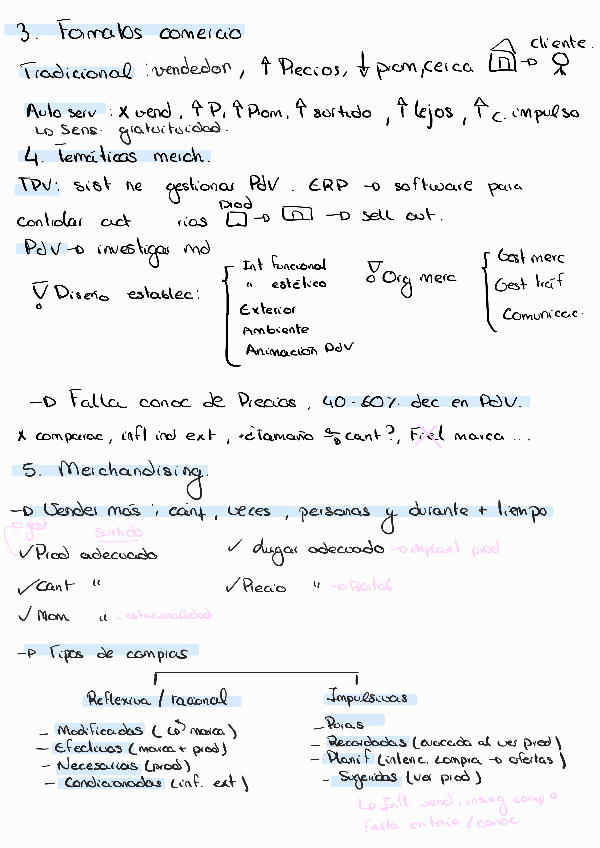 3. Formatos comercio
cliente.
Tradicional : vendedor, ↑ Precios, ↓ prom, cerca
Autoserv : x vend, ↑ P, ↑ Prom, ↑ surtido, ↑ lejos, ↑ c. impulso
↳ Sens. gratuituidad.
4. Temáticas merch.
TPV: sist ne gestionar PdV. ERP → software para
prod
controlar act rias → → sell out.
PdV → investigar md
Diseño establec:
Int funcional
" estético
Exterior
Ambiente
Animación PdV
Org merc
Gest merc
Gest tráf
Comunicac.
→ Falla conoc de Precios, 40-60% dec en PdV.
x comparac, infl ind ext, tamaño cant?, Fiel marca ...
5. Merchandising.
→ Vender más: cant, veces, personas y durante + tiempo
→ gest surtido
✓ Prod adecuado ✓ Lugar adecuado → implant prod
✓ Cant " ✓ Precio " → Rentab
✓ Mom " - estacionalidad
→ Tipos de compras
Reflexiva / racional Impulsivas
- Modificadas (marca) - Puras
- Efectivas (marca + prod) - Recordadas (evocada al ver prod)
- Necesarias (prod) - Planif (intenc. compra → ofertas)
- Condicionadas (inf. ext) - Sugeridas (ver prod)
↳ Infl vend, inseg comp o
falta criterio / conoc